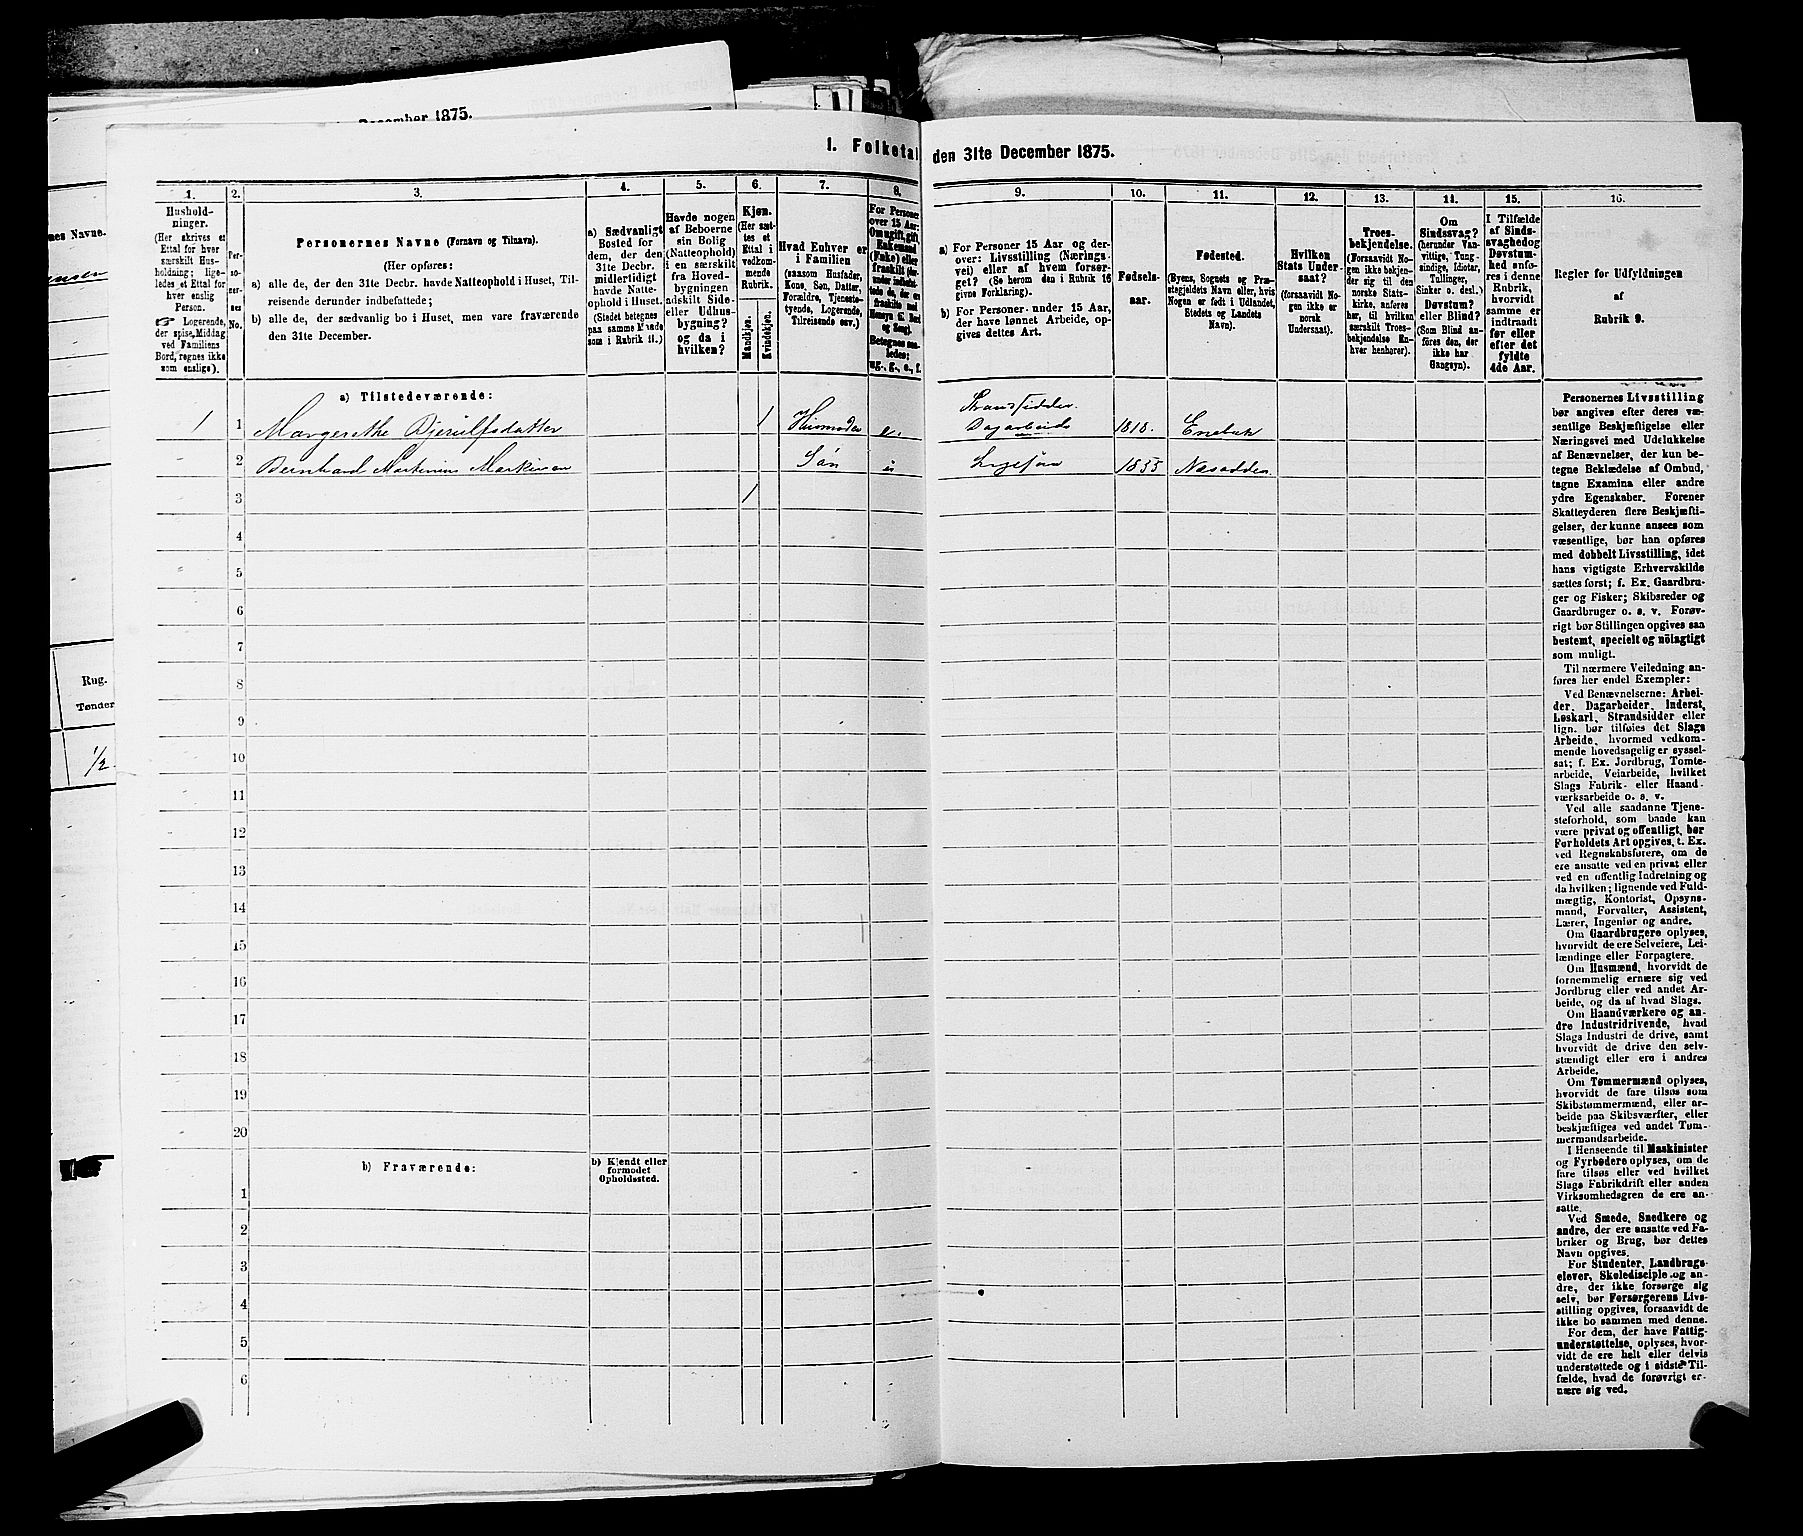 December 1875.
1. Folketal
den 31te December 1875.
nes Navne.
ensen
Rug.
Tønder
1/2
1.
Hushold-
ninger.
(Her skrives et
Ettal for hver
særskilt Hus-
holdning; lige-
ledes et Ettal for
hver enslig
Person.
☞ Logerende,
der spise Middag
ved Familiens
Bord, regnes ikke
som enslige).
2.
Per-
so-
ner-
nes
No.
3.
Personernes Navne (Fornavn og Tilnavn).
(Her opføres:
a) alle de, der den 31te Decbr. havde Natteophold i Huset, Til-
reisende derunder indbefattede;
b) alle de, der sædvanlig bo i Huset, men vare fraværende
den 31te December.
4.
a) Sædvanligt
Bosted for
dem, der den
31te Decbr.
midlertidigt
havde Natte-
ophold i Huset.
(Stedet betegnes
paa samme Maade
som i Rubrik 11.)
5.
Havde nogen
af Beboerne
sin Bolig
(Natteophold)
i en særskilt
fra Hoved-
bygningen
adskilt Side-
eller Udhus-
bygning?
og da i
hvilken?
6.
Kjøn.
(Her sæt-
tes et
Ettal i
vedkom-
mende
Rubrik.
Mandkjøn.
Kvindekjøn.
7.
Hvad Enhver er
i Familien
(saasom Husfader,
Kone, Søn, Datter,
Forældre, Tjeneste-
tyende, Logerende,
Tilreisende osv.)
8.
For Personer
over 15 Aar:
Om ugift, gift,
Enkemand
(Enke) eller
fraskilt
ug., g., e., f.
9.
a) For Personer 15 Aar og der-
over: Livsstilling (Nærings-
vei) eller af hvem forsør-
get? (Se herom den i Rubrik 16
givne Forklaring).
b) For Personer under 15 Aar,
der have lønnet Arbeide, op-
gives dettes Art.
10.
Fødsels-
aar.
11.
Fødested.
(Byens, Sognets og Præ-
stegjeldets Navn eller, hvis
Nogen er født i Udlandet,
Stedets og Landets
Navn).
12.
Hvilken
Stats Under-
saat?
(forsaavidt No-
gen ikke er
norsk
Undersaat).
13.
Troes-
bekjendelse.
(Forsaavidt No-
gen ikke bekjen-
der sig til den
norske Stats-
kirke, anføres
her, til hvilken
særskilt Troes-
bekjendelse En-
hver henhører).
14.
Om
Sindssvag?
(herunder Van-
vittige, Tung-
sindige, Idioter,
Tullinger,
Sinker o. desl.)
Døvstum?
eller Blind?
(Som Blind an-
føres den, der
ikke har
Gangsyn).
15.
I Tilfælde
af Sinds-
svaghed og
Døvstum-
hed anfø-
res i denne
Rubrik,
hvorvidt
samme er
indtraadt
før eller
efter det
fyldte
4de Aar.
16.
Regler for Udfyldningen
af
Rubrik 9.
a) Tilstedeværende:
1 1 Margrethe Djerulfsdatter 1 Husmoder e. Strandsidder. Dagarbeide 1818. Enebak
2 Bernhard Martinius Søn 1855 Næsodden
3 1
4
5
6
7
8
9
10
11
12
13
14
15
16
17
18
19
20
b) Fraværende:
b) Kjendt eller
formodet
Opholdssted.
1
2
3
4
5
6
Personernes Livsstilling
bør angives efter deres væ-
sentlige Beskjæftigelse eller
Næringsvei med Udelukkelse
af Benævnelser, der kun be-
tegne Beklædelse af Ombud,
tagne Examina eller andre
ydre Egenskaber. Forener
Skatteyderen flere Beskjæfti-
gelser, der kunne ansees som
væsentlige, bør han opføres
med dobbelt Livsstilling, idet
hans vigtigste Erhvervskilde
sættes først; f. Ex. Gaardbru-
ger og Fisker; Skibsreder og
Gaardbruger o. s. v. Forøv-
rigt bør Stillingen opgives saa
bestemt, specielt og nöiagtigt
som muligt.
Til nærmere Veiledning an-
føres her endel Exempler:
Ved Benævnelserne: Arbei-
der, Dagarbeider, Inderst,
Løskarl, Strandsidder eller
lign. bør tilføies det Slags
Arbeide, hvormed vedkom-
mende hovedsagelig er syssel-
sat; f. Ex. Jordbrug, Tomte-
arbeide, Veiarbeide, hvilket
Slags Fabrik- eller Haand-
værksarbeide o. s. v.
Ved alle saadanne Tjene-
steforhold, som baade kan
være privat og offentligt, bør
Forholdets Art opgives, t. Ex.
ved Regnskabsførere, om de
ere ansatte ved en privat eller
ved en offentlig Indretning og
da hvilken; lignende ved Fuld-
mægtig, Kontorist, Opsyns-
mand, Forvalter, Assistent,
Lærer, Ingeniør og andre.
Om Gaardbrugere oplyses,
hvorvidt de ere Selveiere, Lei-
lændinge eller Forpagtere.
Om Husmænd, hvorvidt de
fornemmelig ernære sig ved
Jordbrug eller ved andet Ar-
beide, og da af hvad Slags.
Om Haandværkere og an-
dre Industridrivende, hvad
Slags Industri de drive, samt
hvorvidt de drive den selv-
stændigt eller ere i andres
Arbeide.
Om Tømmermænd oplyses,
hvorvidt de fare tilsøs som
Skibstømmermænd, eller ar-
beide paa Skibsværfter, eller
beskjæftiges ved andet Tøm-
mermandsarbeide.
I Henseende til Maskinister
og Fyrbødere oplyses, om de
fare tilsøs eller ved hvilket
Slags Fabrikdrift eller anden
Virksomhedsgren de ere an-
satte.
Ved Smede, Snedkere og
andre, der ere ansatte ved Fa-
briker og Brug, bør dettes
Navn opgives.
For Studenter, Landbrugs-
elever, Skoledisciple og an-
dre, der ikke forsørge sig
selv, bør Forsørgerens Livs-
stilling opgives, forsaavidt de
ikke bo sammen med denne.
For dem, der have Fattig-
understøttelse, oplyses, hvor-
vidt de ere helt eller delvis
understøttede og i sidste Til-
fælde, hvad de forøvrigt er-
nære sig ved.